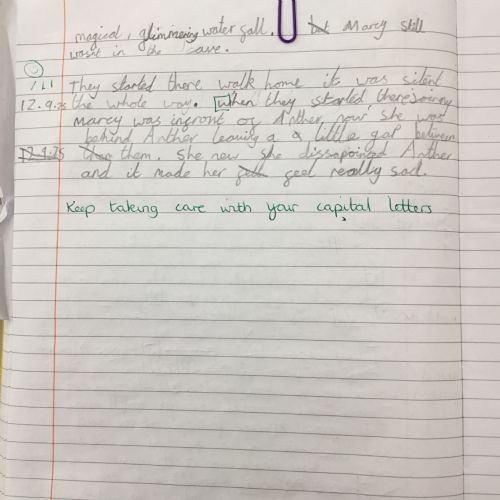 magical, glimmering water fall. but Marcy still
wasnt in the cave.
They started there walk home it was silent
12.9.25 the whole way. When they started there joiney
Marcy was infront of Anther now she was
behind Anther leaving a a little gap between
12.9.25 than them. She new she dissapoined Anther
and it made her felt feel really sad.
Keep taking care with your capital letters